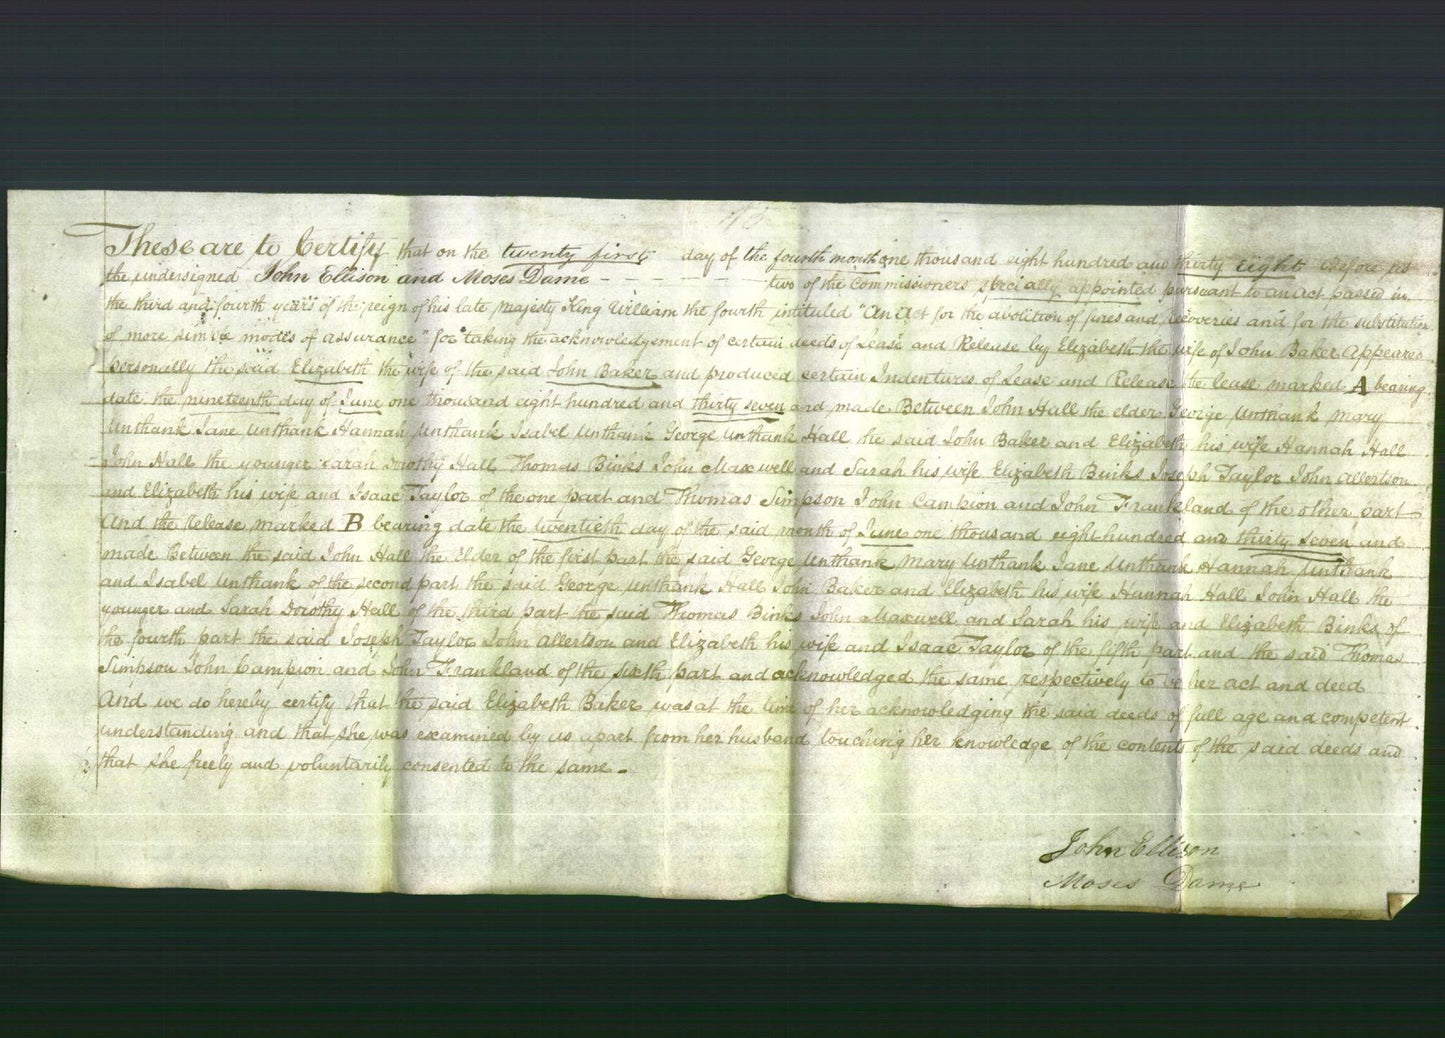 These are to Certify that on the twenty first day of the fourth month one thousand eight hundred and thirty eight before us
the undersigned John Ellison and Moses Dame two of the Commissioners specially appointed pursuant to an act passed in
the third and fourth years of the reign of his late Majesty King William the fourth intituled "An Act for the abolition of fines and recoveries and for the substitution
of more simple modes of assurance" for taking the acknowledgement of certain deeds of Lease and Release by Elizabeth the wife of John Baker Appeared
personally the said Elizabeth the wife of the said John Baker and produced certain Indentures of Lease and Release the lease marked A bearing
date the nineteenth day of June one thousand eight hundred and thirty seven and made Between John Hall the elder George Unthank Mary
Unthank Jane Unthank Hannah Unthank Isabel Unthank George Unthank Hall the said John Baker and Elizabeth his wife Hannah Hall
John Hall the younger Sarah Dorothy Hall Thomas Binks John Maxwell and Sarah his wife Elizabeth Binks Joseph Taylor John Allertson
and Elizabeth his wife and Isaac Taylor of the one part and Thomas Simpson John Campion and John Frankland of the other part
And the Release marked B bearing date the twentieth day of the said month of June one thousand eight hundred and thirty seven and
made Between the said John Hall the Elder of the first part the said George Unthank Mary Unthank Jane Unthank Hannah Unthank
and Isabel Unthank of the second part the said George Unthank Hall John Baker and Elizabeth his wife Hannah Hall John Hall the
younger and Sarah Dorothy Hall of the third part the said Thomas Binks John Maxwell and Sarah his wife and Elizabeth Binks of
the fourth part the said Joseph Taylor John Allertson and Elizabeth his wife and Isaac Taylor of the fifth part and the said Thomas
Simpson John Campion and John Frankland of the sixth part and acknowledged the same respectively to be her act and deed
And we do hereby certify that the said Elizabeth Baker was at the time of her acknowledging the said deeds of full age and competent
understanding and that she was examined by us apart from her husband touching her knowledge of the contents of the said deeds and
that she freely and voluntarily consented to the same.
John Ellison
Moses Dame